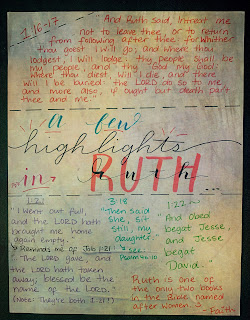 1:16-17
And Ruth said, Intreat me
not to leave thee, or to return
from following after thee: for whither
thou goest I will go; and where thou
lodgest, I will lodge: thy people shall be
my people, and thy God my God:
where thou diest, will I die, and there
will I be buried: the LORD do so to me
and more also, if ought but death part
thee and me."
a few
highlights
in RUTH...
1:21
"I went out full
and the LORD hath
brought me home
again empty.
Reminds me of Job 1:21
"... The LORD gave, and
the LORD hath taken
away; blessed be the
name of the LORD."
(Note: They're both 1:21!)
3:18
"Then said
she, Sit
still, my
daughter..."
see
Psalm 46:10
1:22
"And Obed
begat Jesse
and Jesse
begat
David."
Ruth is one of
the only two books
in the Bible named
after women.
Faith